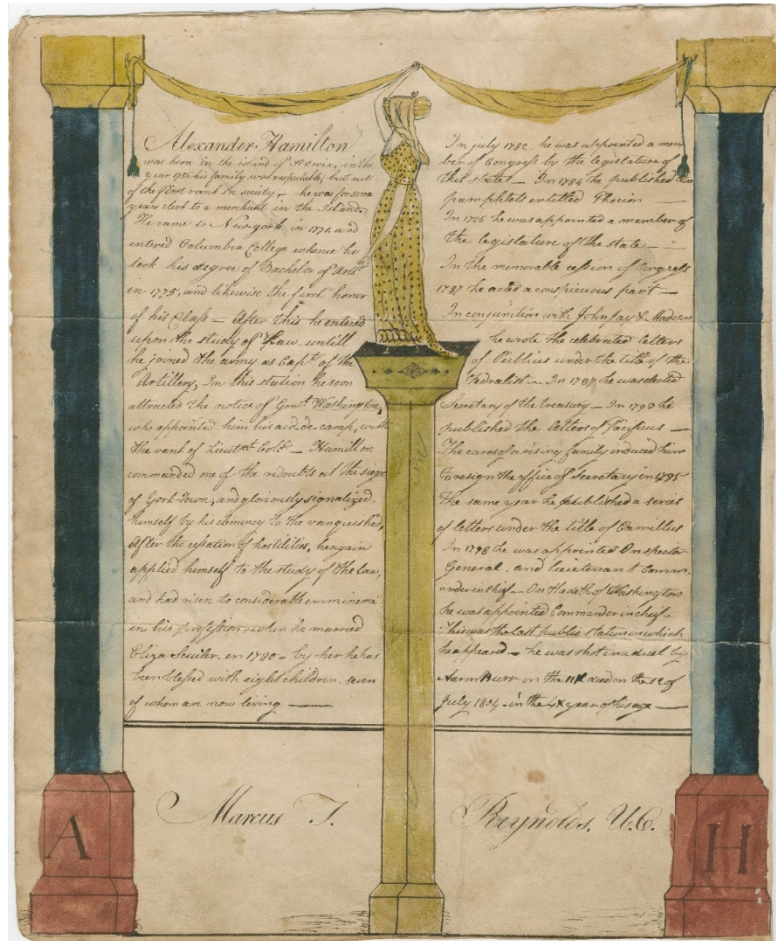 Alexander Hamilton
was born in the island of St Croix, in the
year 1756 his family was reputable, but not
of the first rank in society, — he was for some
years clerk to a merchant in the Island.
He came to New-york in 1771, and
entered Columbia College whence he
took his degree of Bachelor of Arts
in 1775, and likewise the first honor
of his Class — After this he entered
upon the study of Law untill
he joined the army as Capt of the
Artillery, In this station he soon
attracted the notice of Genl Washington,
who appointed him his aid-de-camp, with
the rank of Lieutnt Coll — Hamilton
commanded one of the redoubts at the
of York-Town; and gloriously signalized
himself by his clemency to the vanquished,
After the cessation of hostilities, he again
applied himself to the study of the law,
and had risen to considerable
in his profession when he married
Eliza in 1780 — by her he has
been blessed with eight children, seven
of whom are now living —
In july 1782 he was appointed a mem
ber of Congress by the legislature of
this state — In 1784 he published
pamphlets entitled Phocion
In 1786 he was appointed a member of
the legislature of the state —
In the memorable cession of Congress
1787 he acted a conspicuous part —
In conjuntion with John Jay &
he wrote the celebrated letters
of Publius under the title of the
Fedralist — In 1789 he was elected
Secretary of the treasury — In 1793 he
published the letters of Pacificus —
The cares of a rising family induced him
to resign the office of Secretary in 1795
The same year he published a series
of letters under the title of Camillus
In 1798 he was appointed Inspector
General, and Lieutenant Comm
under in chief — On the death of Washington
he was appointed Commander in chief —
This was the last public station in which
he appeard — he was shot in a duel by
Aaron Burr on the 11th died on the 12 of
July 1804 — in the year of his age —
Marcus T. Reynolds, U.C.
A
H